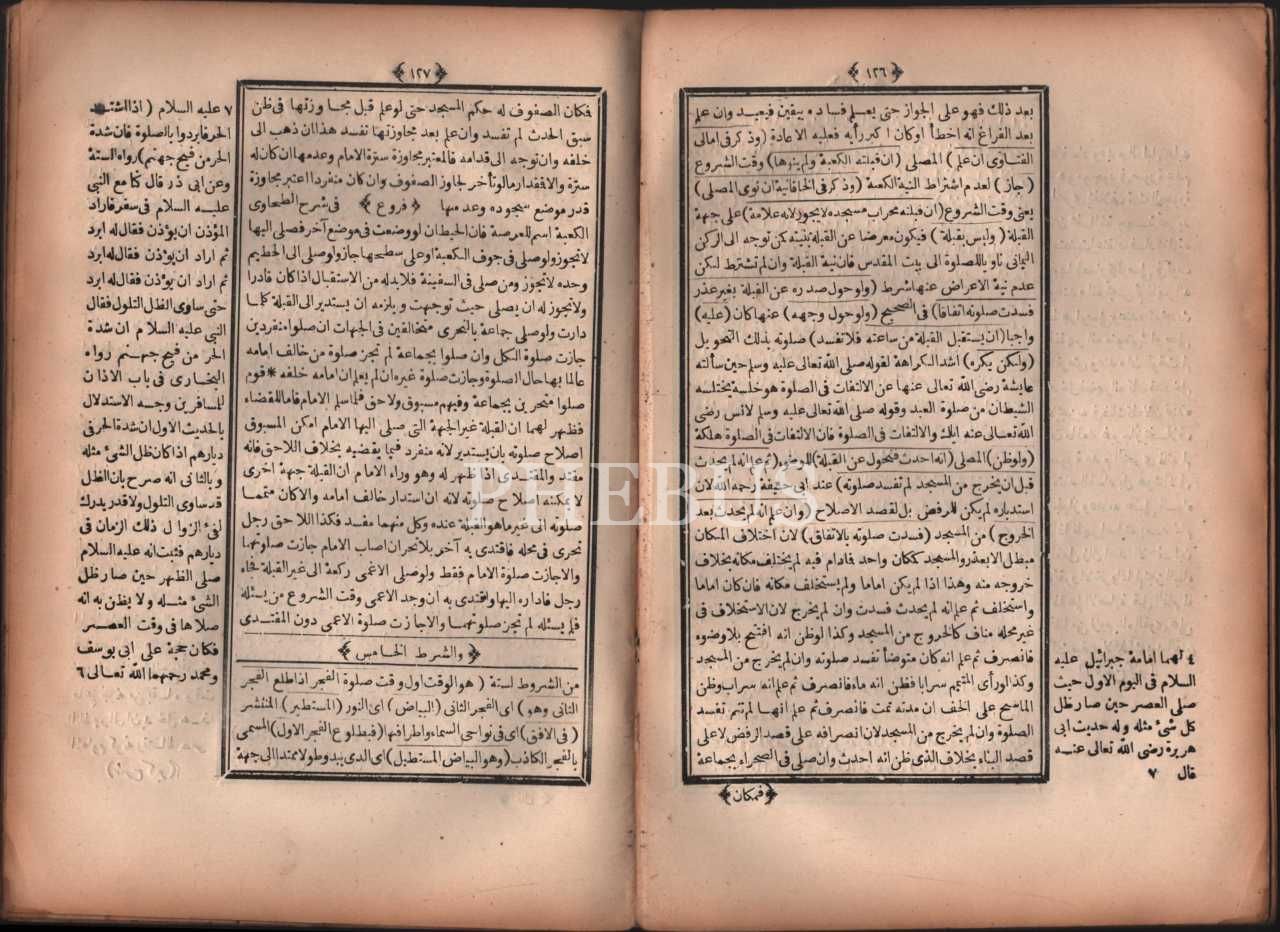 ﴿ ١٢٦ ﴾
بعد ذلك فهو على الجواز حتى يعلم فساده بيقين فيعيد وان علم
بعد الفراغ انه اخطأ اوكان اكبر رأيه فعليه الاعادة (وذكر فى امالى
الفتاوى ان علم) المصلى (ان قبلته الكعبة ولم ينوها) وقت الشروع
(جاز) لعدم اشتراط النية الكعبة (وذكر فى الخاقانية ان نوى المصلى)
يعنى وقت الشروع (ان قبلته محراب مسجده لايجوز لانه علامة) على جهة
القبلة (وليس بقبلة) فيكون معرضا عن القبلة بنيته كن توجه الى الركن
اليمانى ناويا للصلوة الى بيت المقدس فان نية القبلة وان لم تشترط لكن
عدم نية الاعراض عنها شرط (ولوحول صدره عن القبلة بغير عذر
فسدت صلوته اتفاقا) فى الصحيح (ولوحول وجهه) عنها كان (عليه)
واجبا (ان يستقبل القبلة من ساعته فلاتفسد) صلوته بذلك التحويل
(ولكن يكره) اشد الكراهة لقوله صلى الله تعالى عليه وسلم حين سألته
عايشة رضى الله تعالى عنها عن الالتفات فى الصلوة هو خلسة يختلسه
الشيطان من صلوة العبد وقوله صلى الله تعالى عليه وسلم لانس رضى
الله تعالى عنه اياك والالتفات فى الصلوة فان الالتفات فى الصلوة هلكة
(ولوظن) المصلى (انه احدث فتحول عن القبلة) للوضوء (ثم علم انه لم يحدث
قبل ان يخرج من المسجد لم تفسد صلوته) عند ابى حنيفة رحمه الله لان
استدباره لم يكن للرفض بل لقصد الاصلاح (وان علم انه لم يحدث بعد
الخروج) من المسجد (فسدت صلوته بالاتفاق) لان اختلاف المكان
مبطل الا بعذر والمسجد كمكان واحد فادام فيه لم يختلف مكانه بخلاف
خروجه منه وهذا اذا لم يكن اماما ولم يستخلف مكانه فان كان اماما
واستخلف ثم علم انه لم يحدث فسدت وان لم يخرج لان الاستخلاف فى
غير محله مناف كالخروج من المسجد وكذا لوظن انه افتتح بلاوضوء
فانصرف ثم علم انه كان متوضأ تفسد صلوته وان لم يخرج من المسجد
وكذا لورأى المتيمم سرابا فظن انه ماء فانصرف ثم علم انه سراب وظن
الماسح على الخف ان مدته تمت فانصرف ثم علم انها لم تتم تفسد
الصلوة وان لم يخرج من المسجد لان انصرافه على قصد الرفض لا على
قصد البناء بخلاف الذى ظن انه احدث وان صلى فى الصحراء بجماعة
﴿ فمكان ﴾
٤ لهما امامة جبرائيل عليه
السلام فى اليوم الاول حيث
صلى العصر حين صار ظل
كل شئ مثله وله حديث ابى
هريرة رضى الله تعالى عنه
قال ٧
﴿ ١٢٧ ﴾
فكان الصفوف له حكم المسجد حتى لوعلم قبل مجاوزتها فى ظن
سبق الحدث لم تفسد وان علم بعد مجاوزتها تفسد هذا ان ذهب الى
خلفه وان توجه الى قدامه فالمعتبر مجاوزة سترة الامام وعدمها ان كان له
سترة والا فقدار مالو تأخر لجاوز الصفوف وان كان منفردا اعتبر مجاوزة
قدر موضع سجوده وعدمها ﴿ فروع ﴾ فى شرح الطحاوى
الكعبة اسم للعرصة فان الحيطان لو وضعت فى موضع آخر فصلى اليها
لاتجوز ولوصلى فى جوف الكعبة او على سطحها جاز ولوصلى الى الحطيم
وحده لاتجوز ومن صلى فى السفينة فلابد له من الاستقبال اذا كان قادرا
ولاتجوز له ان يصلى حيث توجهت ويلزمه ان يستدير الى القبلة كلما
دارت ولوصلى جماعة بالتحرى متخالفين فى الجهات ان صلوا منفردين
جازت صلوة الكل وان صلوا بجماعة لم تجز صلوة من خالف امامه
عالما بها حال الصلوة وجازت صلوة غيره ان لم يعلم ان امامه خلفه * قوم
صلوا متحرين بجماعة وفيهم مسبوق ولاحق فلما سلم الامام قاما للقضاء
فظهر لهما ان القبلة غير الجهة التى صلى اليها الامام امكن المسبوق
اصلاح صلوته بان يستدير لانه منفرد فيما يقضيه بخلاف اللاحق فانه
مقتد والمقتدى اذا ظهر له وهو وراء الامام ان القبلة جهة اخرى
لايمكنه اصلاح صلوته لانه ان استدار خالف امامه والا كان متمما
صلوته الى غير ماهو القبلة عنده وكل منهما مفسد فكذا اللاحق رجل
تحرى فى محله فاقتدى به آخر بلاتحر ان اصاب الامام جازت صلوتهما
والا جازت صلوة الامام فقط ولوصلى الاعمى ركعة الى غير القبلة فجاء
رجل فاداره اليها واقتدى به ان وجد الاعمى وقت الشروع من يسئله
فلم يسئله لم تجز صلوتهما والا جازت صلوة الاعمى دون المقتدى
﴿ والشرط الخامس ﴾
من الشروط لستة (هو الوقت اول وقت صلوة الفجر اذا طلع الفجر
الثانى وهو) اى الفجر الثانى (البياض) اى النور (المستطير) المنتشر
(فى الافق) اى فى نواحى السماء واطرافها (فبطلوع الفجر الاول) المسمى
بالفجر الكاذب (وهو البياض المستطيل) اى الذى يبدو طولا ممتدا الى جهة
٧ عليه السلام (اذا اشتد
الحر فابردوا بالصلوة فان شدة
الحر من فيح جهنم) رواه الستة
وعن ابى ذر قال كنا مع النبى
عليه السلام فى سفر فاراد
المؤذن ان يؤذن فقال له ابرد
ثم اراد ان يؤذن فقال له ابرد
ثم اراد ان يؤذن فقال له ابرد
حتى ساوى الظل التلول فقال
النبى عليه السلام ان شدة
الحر من فيح جهنم رواه
البخارى فى باب الاذان
للمسافرين وجه الاستدلال
بالحديث الاول ان شدة الحر فى
ديارهم اذا كان ظل الشئ مثله
وبالثانى انه صرح بان الظل
قد ساوى التلول ولاقدر يدرك
لفئ الزوال ذلك الزمان فى
ديارهم فثبت انه عليه السلام
صلى الظهر حين صار ظل
الشئ مثله ولا يظن به انه
صلاها فى وقت العصر
فكان حجة على ابى يوسف
ومحمد رحمهما الله تعالى ٦
PHEBUS